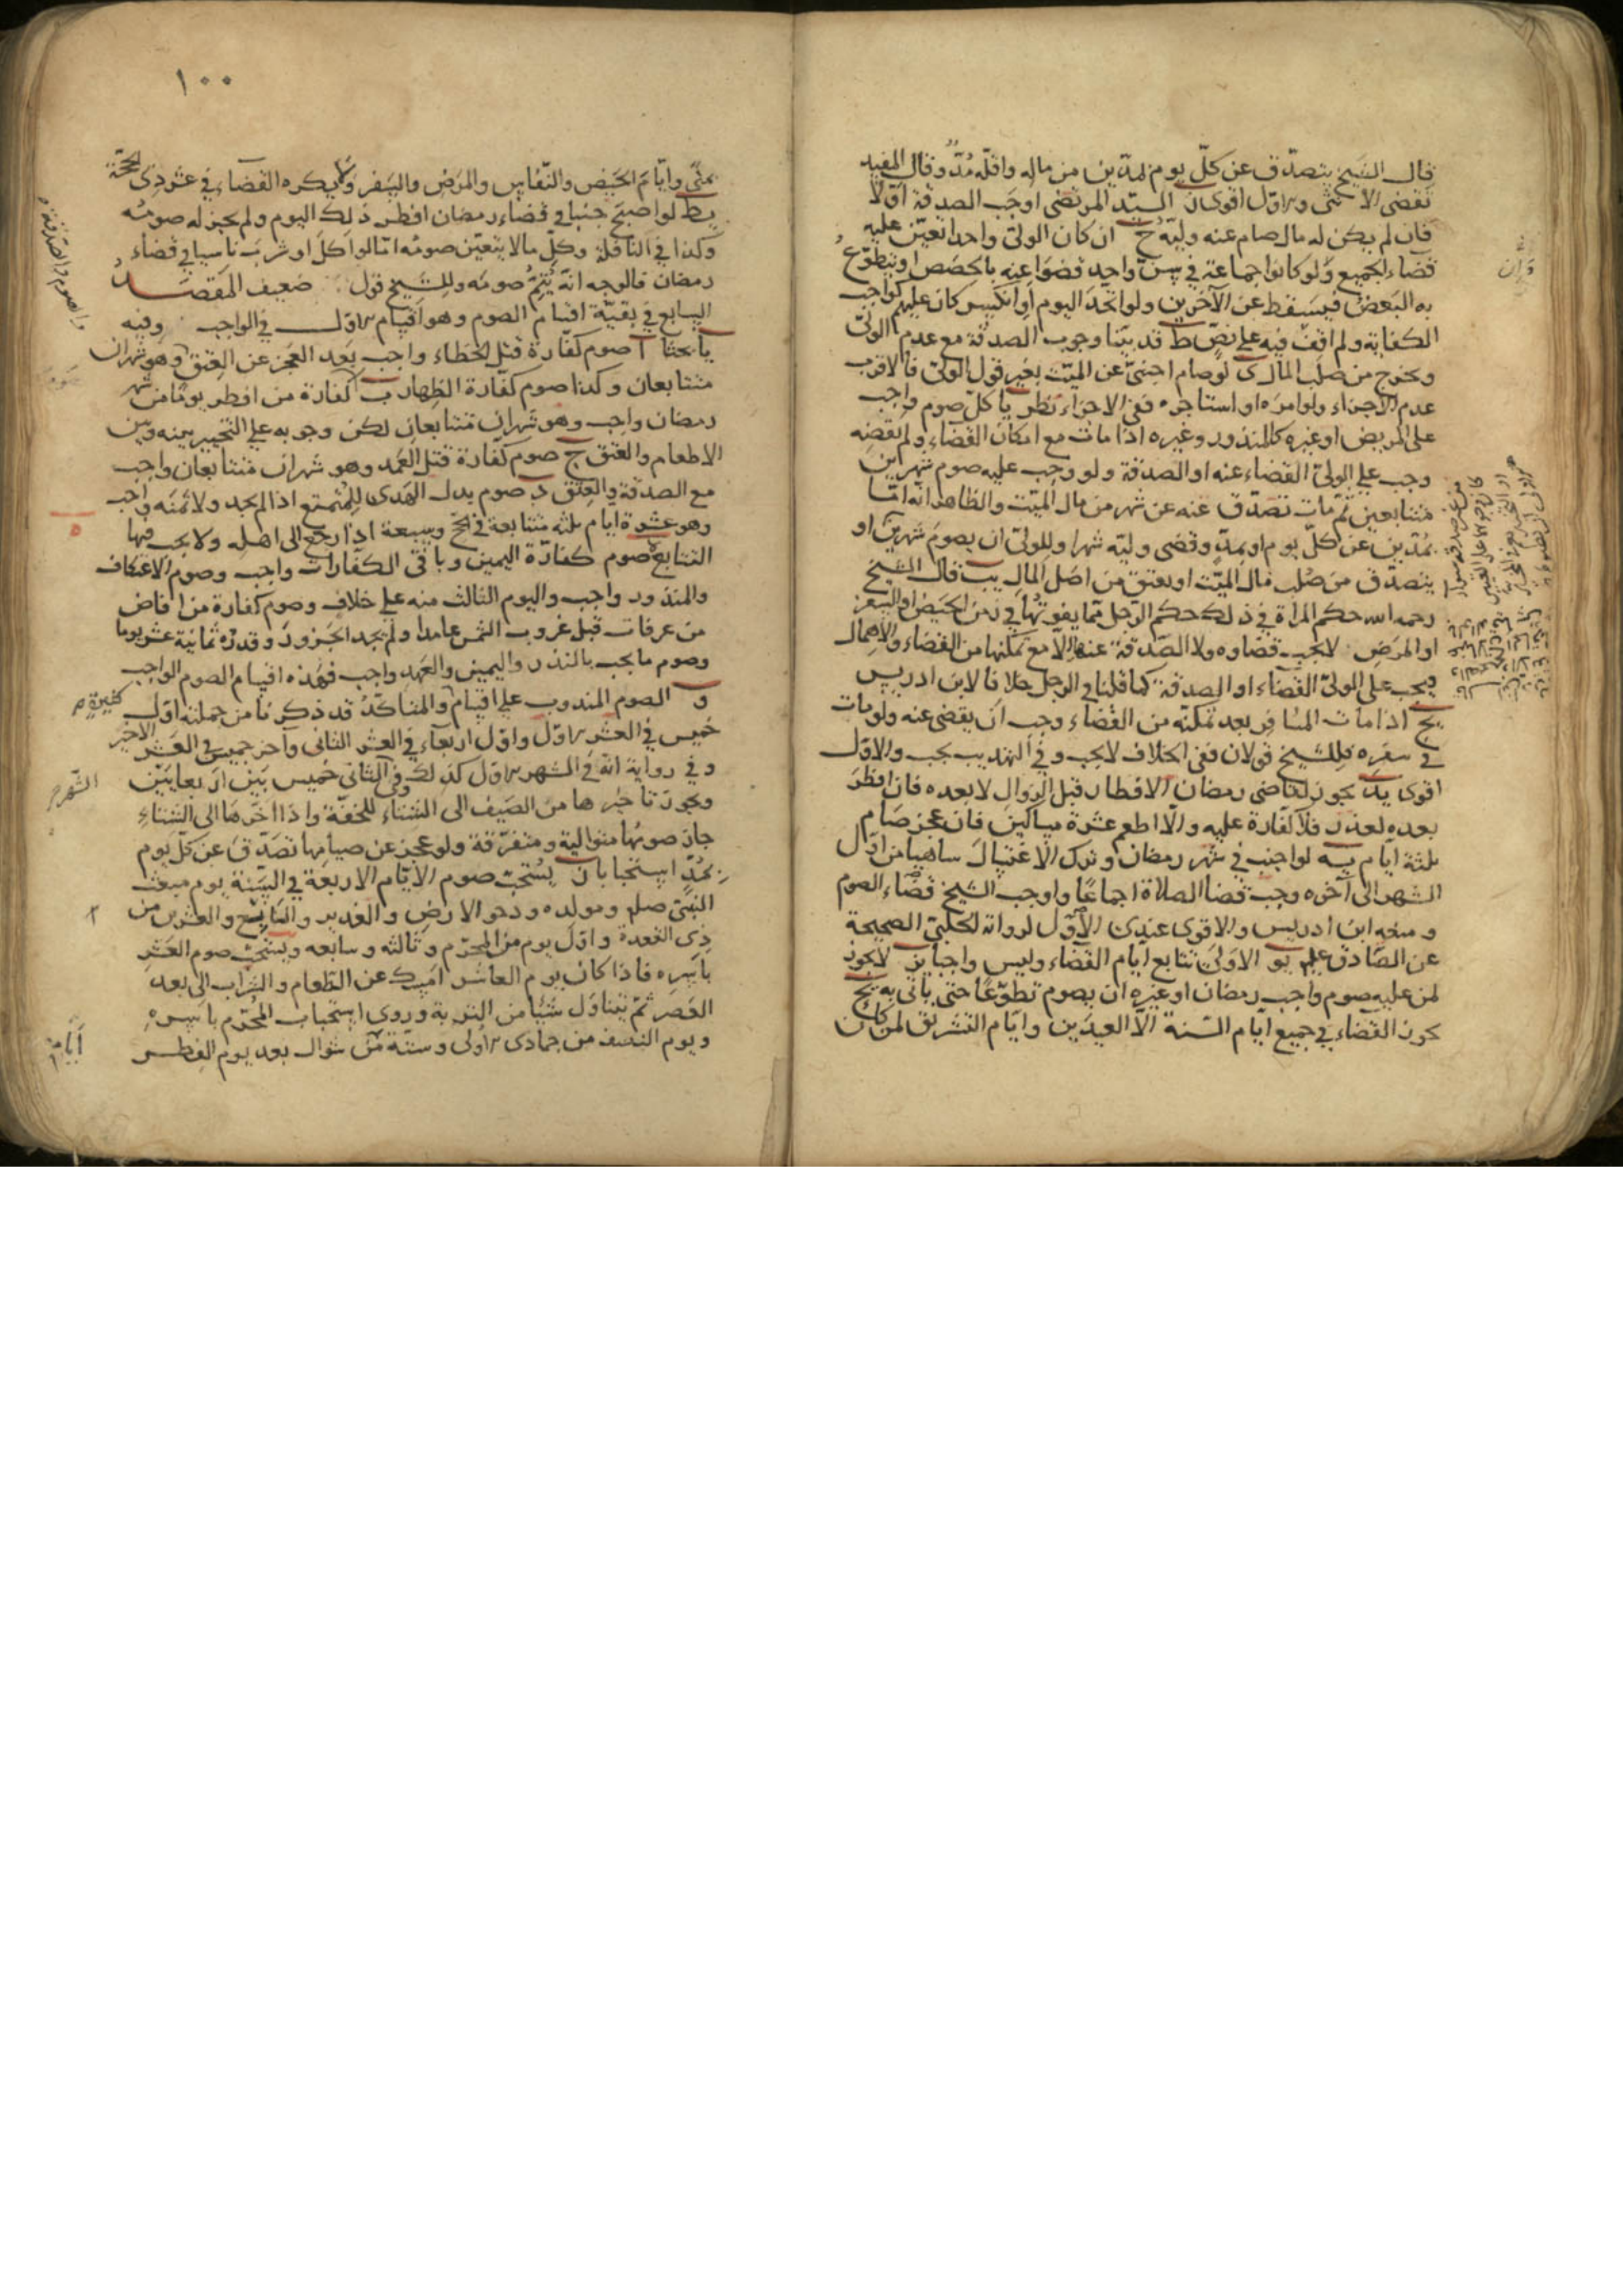 قال الشيخ يتصدق عن كل يوم بمدين من ماله واقله مد وقال المفيد
تقضى الانثى والاول اقوى السيد المرتضى اوجب الصدقة اولا
فان لم يكن له مال صام عنه وليه ح ان كان الولى واحدا تعين عليه
قضاء الجميع ولو كانوا جماعة في سن واحد قضوا عنه بالحصص او يتطوع
به البعض فيسقط عن الآخرين ولو اتحد اليوم او انكسر كان عليهم كواجب
الكفاية ولم اقف فيه على نص ط قد بينا وجوب الصدقة مع عدم الولى
ويخرج من صلب المال ى لو صام اجنبى عن الميت بغير قول الولى فالاقرب
عدم الاجزاء ولو امره او استاجره ففى الاجزاء نظر يا كل صوم واجب
على المريض او غيره كالمنذور وغيره اذا مات مع امكان القضاء ولم يقضه
وجب على الولى القضاء عنه او الصدقة ولو وجب عليه صوم شهرين
متتابعين ثم مات تصدق عنه عن شهر من مال الميت والظاهر انه اما
بمدين عن كل يوم او بمد وقضى وليه شهرا وللولى ان يصوم شهرين او
يتصدق من صلب مال الميت او يعتق من اصل المال يب قال الشيخ
رحمه الله حكم المراة في ذلك حكم الرجل مما يفوتها في زمن الحيض او السفر
او المرض لا يجب قضاوه ولا الصدقة عنها الا مع تمكنها من القضاء والاهمال
ويجب على الولى القضاء او الصدقة كما قلنا في الرجل خلافا لابن ادريس
يج اذا مات المسافر بعد تمكنه من القضاء وجب ان يقضى عنه ولو مات
في سفره فللشيخ قولان ففى الخلاف لا يجب وفي التهذيب يجب والاول
اقوى يد يجوز لقاضى رمضان الافطار قبل الزوال لا بعده فان افطر
بعده لعذر فلا كفارة عليه والا اطعم عشرة مساكين فان عجز صام
ثلثة ايام يه لو اجنب في شهر رمضان وترك الاغتسال ساهيا من اول
الشهر الى آخره وجب قضا الصلاة اجماعا واوجب الشيخ قضاء الصوم
ومنعه ابن ادريس والاقوى عندى الاول لرواية الحلبى الصحيحة
عن الصادق علم يو الاولى تتابع ايام القضاء وليس واجبا يز لا يجوز
لمن عليه صوم واجب رمضان او غيره ان يصوم تطوعا حتى ياتى به يح
يجوز القضاء في جميع ايام السنة الا العيدين وايام التشريق لمن كان
١٠٠
بمنى وايام الحيض والنفاس والمرض والسفر ولا يكره القضاء في عشر ذى الحجة
يط لو اصبح جنبا في قضاء رمضان افطر ذلك اليوم ولم يجز له صومه
وكذا في النافلة وكل ما لا يتعين صومه اما لو اكل او شرب ناسيا في قضاء
رمضان فالوجه انه يتم صومه وللشيخ قول ضعيف المقصد
السابع في بقية اقسام الصوم وهو اقسام الاول في الواجب وفيه
يا بحثا آ صوم كفارة قتل الخطاء واجب بعد العجز عن العتق وهو شهران
متتابعان وكذا صوم كفارة الظهار ب كفارة من افطر يوما من شهر
رمضان واجب وهو شهران متتابعان لكن وجوبه على التخيير بينه وبين
الاطعام والعتق ج صوم كفارة قتل العمد وهو شهران متتابعان واجب
مع الصدقة والعتق د صوم بدل الهدى للمتمتع اذا لم يجد ولا ثمنه واجب
وهو عشرة ايام ثلثه متتابعة في الحج وسبعة اذا رجع الى اهله ولا يجب فيها
التتابع ه صوم كفارة اليمين وباقى الكفارات واجب وصوم الاعتكاف
والمنذور واجب واليوم الثالث منه على خلاف وصوم كفارة من افاض
من عرفات قبل غروب الشمس عامدا ولم يجد الجزور وقدره ثمانية عشر يوما
وصوم ما يجب بالنذر واليمين والعهد واجب فهذه اقسام الصوم الواجب
و الصوم المندوب على اقسام والمتاكد قد ذكرنا من جملته اول
كثيرة
خميس في العشر الاول واول اربعاء في العشر الثانى وآخر خميس في العشر الاخير
وفي رواية انه في الشهر الاول كذلك وفي الثانى خميس بين اربعايين
الشهر
ويجوز تاخيرها من الصيف الى الشتاء للخفة واذا اخرها الى الشتاء
جاز صومها متوالية ومتفرقة ولو عجز عن صيامها تصدق عن كل يوم
بمد استحبابا ز يستحب صوم الايام الاربعة في السنة يوم مبعث
النبى صلم ومولده ودحو الارض والغدير والتاسع والعشرين من
ذى القعدة واول يوم من المحرم وثالثه وسابعه ويستحب صوم العشر
باسره فاذا كان يوم العاشر امسك عن الطعام والشراب الى بعد
العصر ثم يتناول شيئا من التربة وروى استحباب المحرم باسره
ويوم النصف من جمادى الاولى وستة من شوال بعد يوم الفطر
ايام